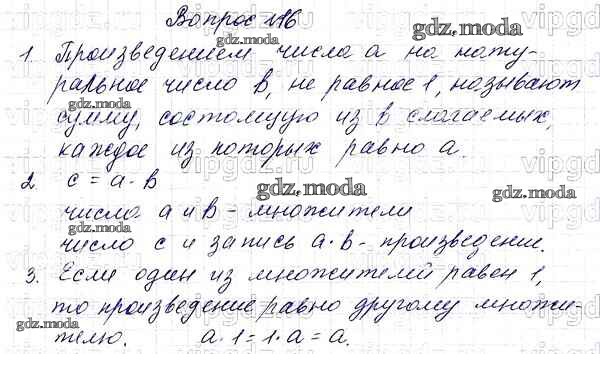 Вопрос №16
gdz.moda
1. Произведением числа a на нату-
ральное число b, не равное 1, называют
gdz.moda
сумму, состоящую из b слагаемых,
каждое из которых равно a.
2. c = a · b
gdz.moda
числа a и b - множители
gdz.moda
число c и запись a · b - произведение.
3. Если один из множителей равен 1,
то произведение равно другому множи-
gdz.moda
телю. a · 1 = 1 · a = a.